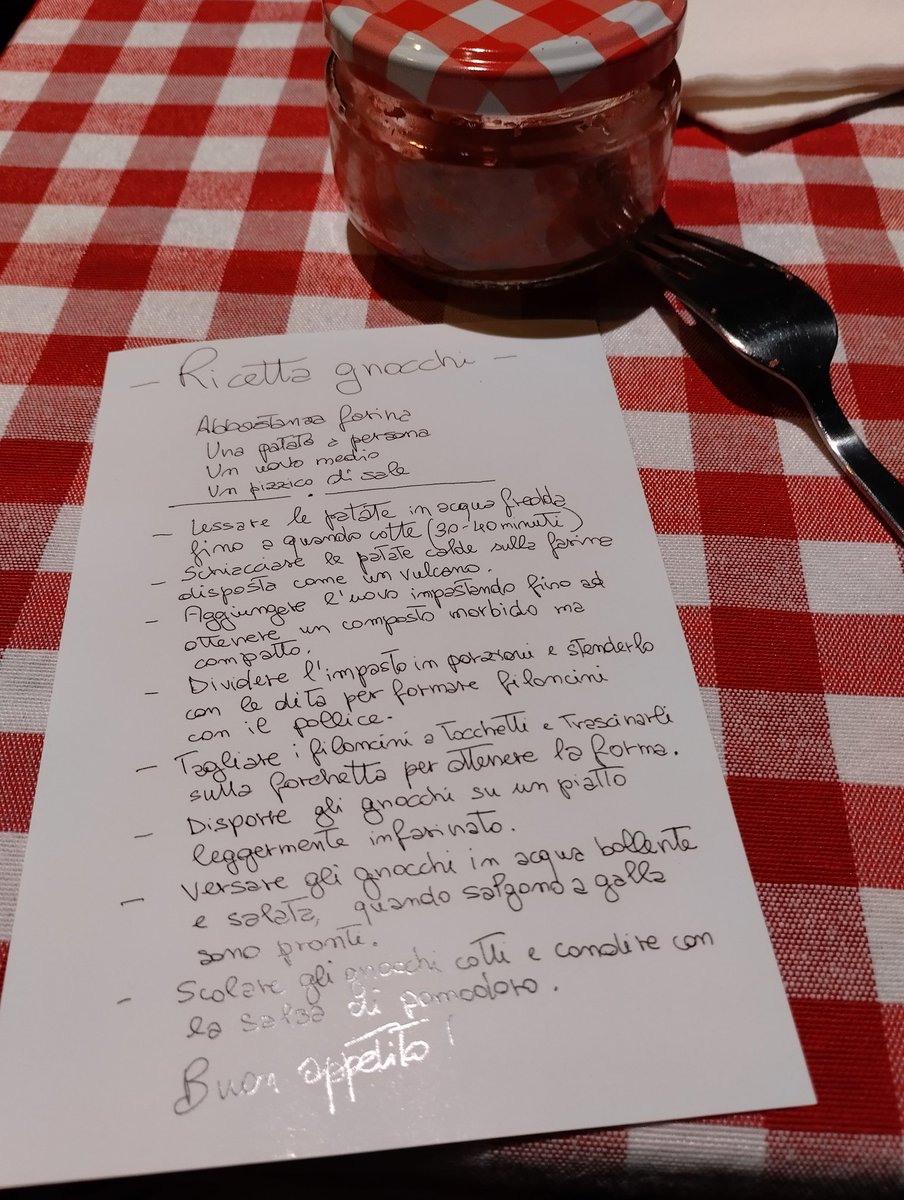 - Ricetta gnocchi -
Abbastanza farina
Una patata a persona
Un uovo medio
Un pizzico di sale
- Lessare le patate in acqua fredda
fino a quando cotte (30-40 minuti)
- Schiacciare le patate calde sulla farina
disposta come un vulcano.
- Aggiungere l'uovo impastando fino ad
ottenere un composto morbido ma
compatto.
- Dividere l'impasto in porzioni e stenderlo
con le dita per formare filoncini
con il pollice.
- Tagliare i filoncini a tocchetti e trascinarli
sulla forchetta per ottenere la forma.
- Disporre gli gnocchi su un piatto
leggermente infarinato.
- Versare gli gnocchi in acqua bollente
e salata, quando salgono a galla
sono pronti.
- Scolare gli gnocchi cotti e condire con
la salsa di pomodoro.
Buon appetito!